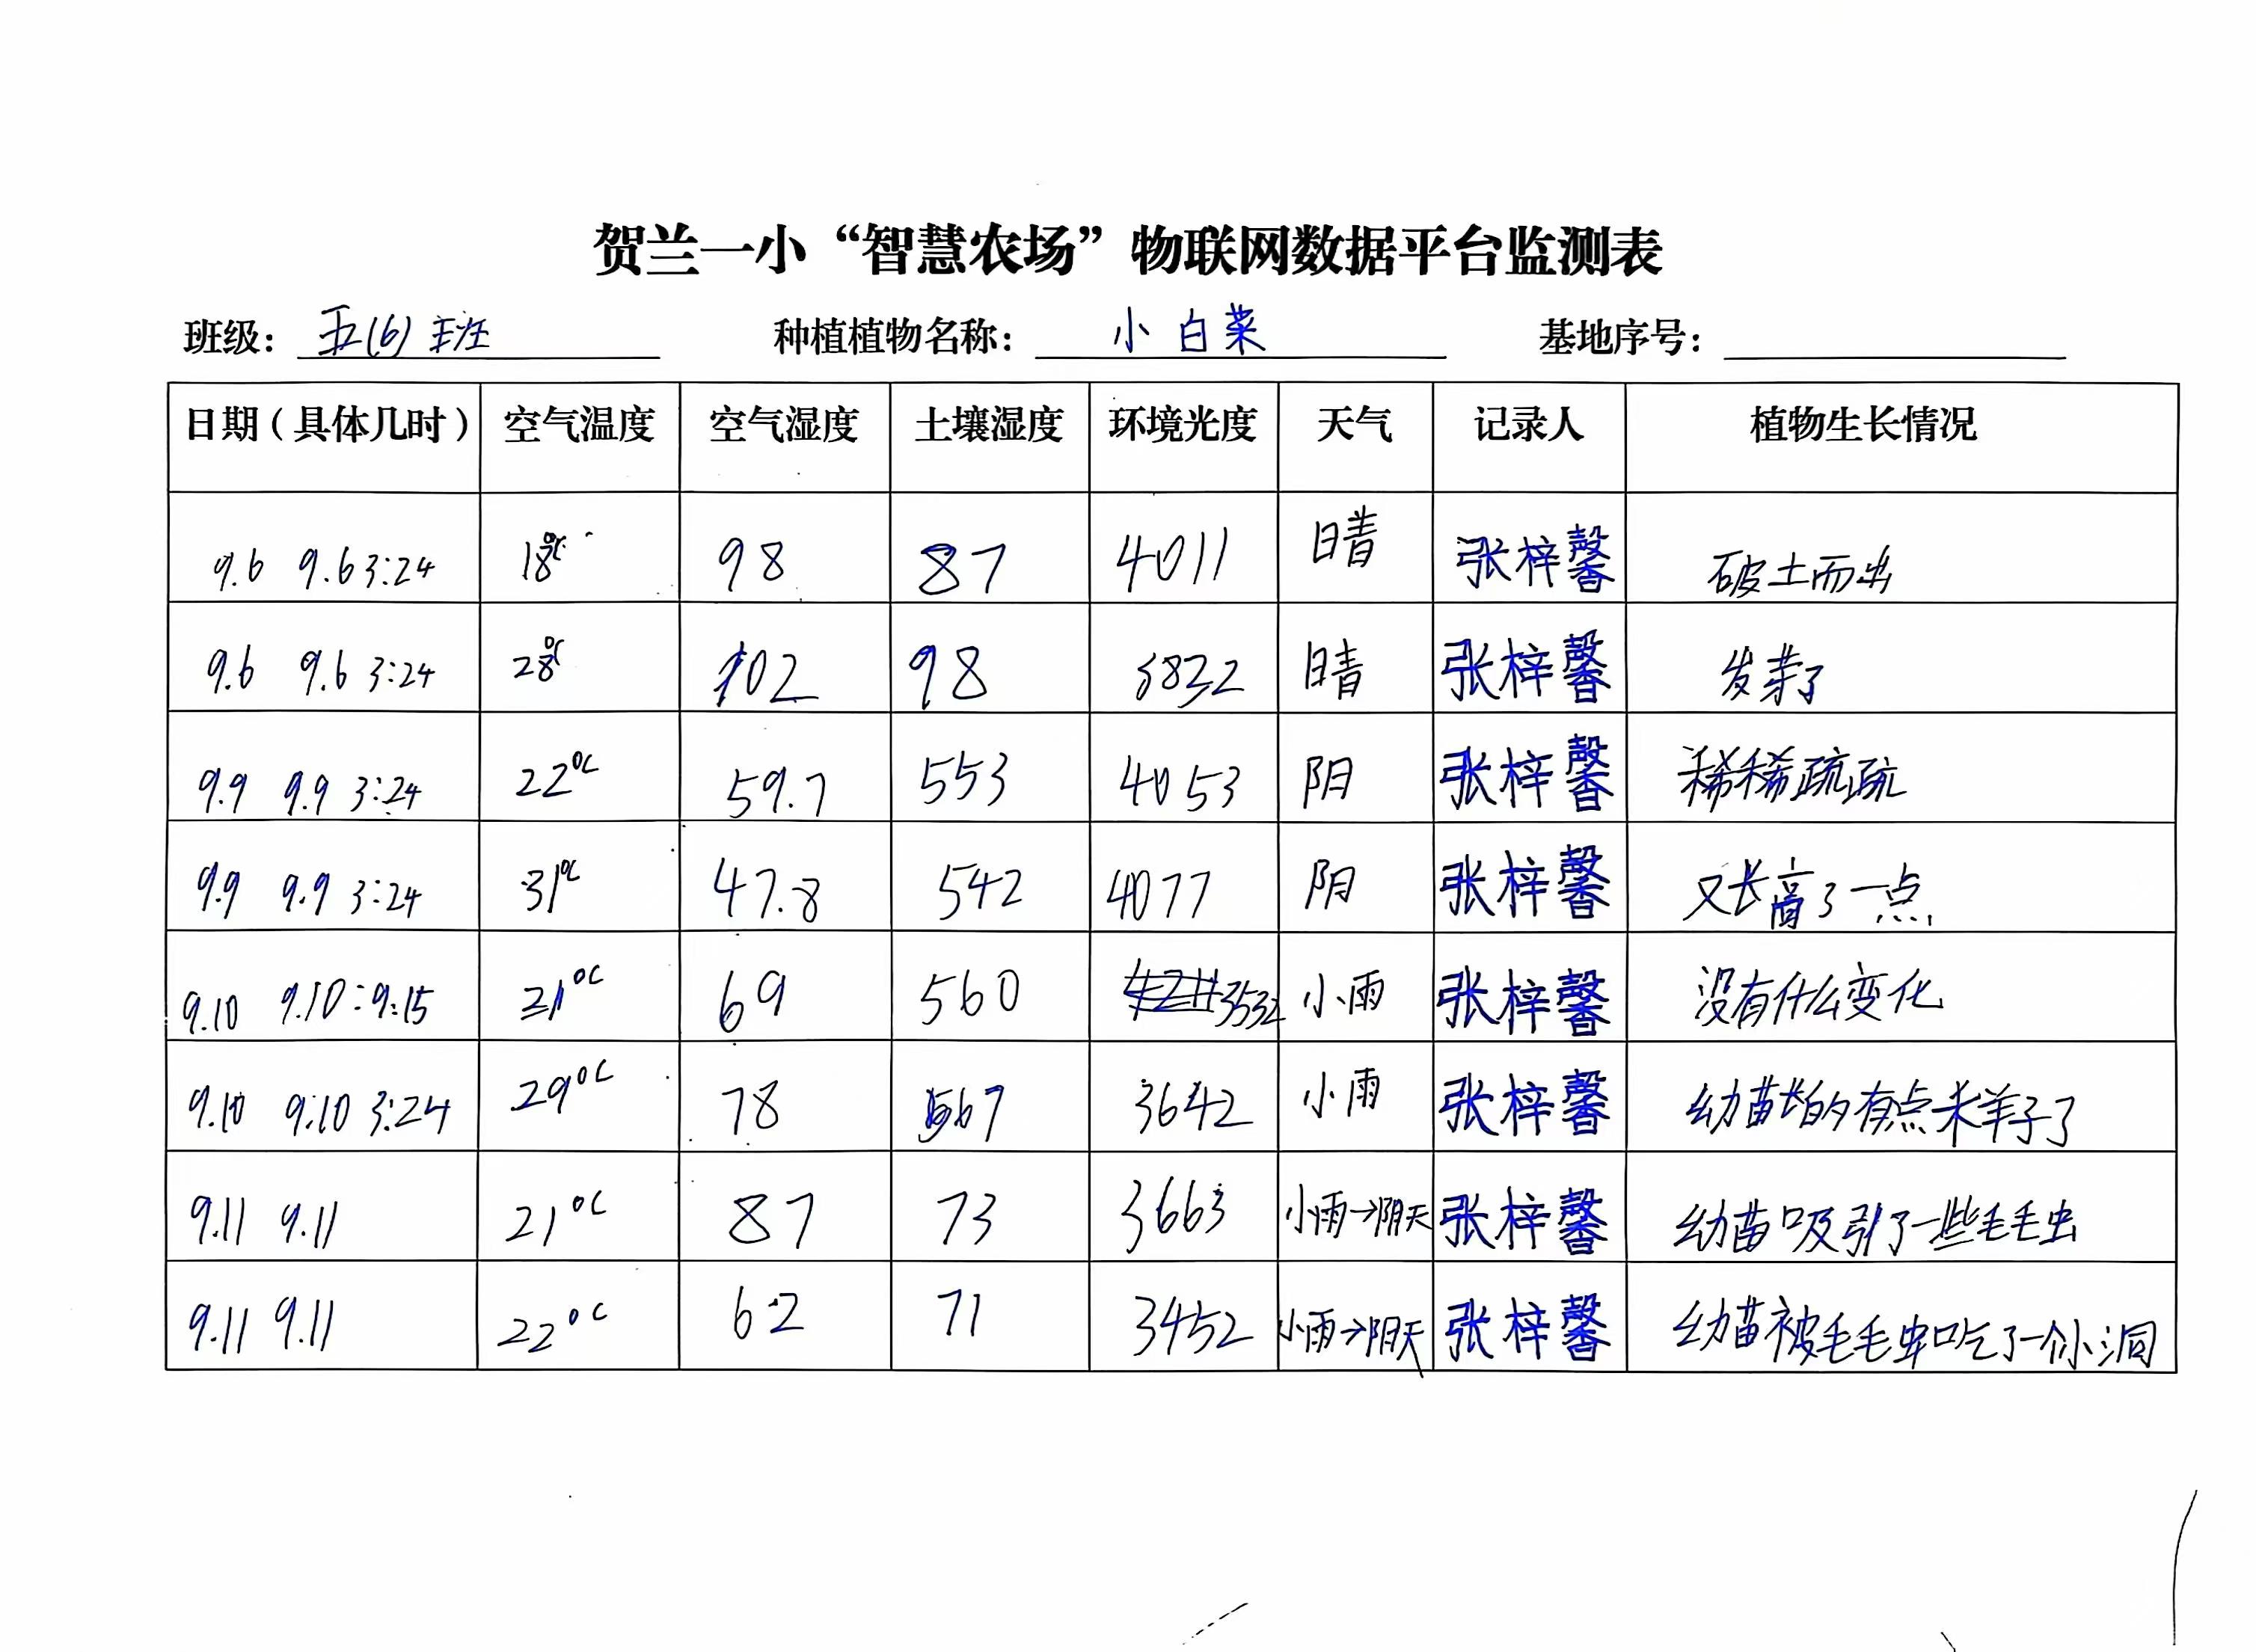 贺兰一小“智慧农场”物联网数据平台监测表
班级： 五(6)班 种植植物名称： 小白菜 基地序号：
日期（具体几时） 空气温度 空气湿度 土壤湿度 环境光度 天气 记录人 植物生长情况
9.6 9.6 3:24 18℃ 98 87 4011 晴 张梓馨 破土而出
9.6 9.6 3:24 28℃ 102 98 3832 晴 张梓馨 发芽了
9.9 9.9 3:24 22℃ 59.7 553 4053 阴 张梓馨 稀稀疏疏
9.9 9.9 3:24 31℃ 47.8 542 4077 阴 张梓馨 又长高了一点
9.10 9.10:9:15 21℃ 69 560 3532 小雨 张梓馨 没有什么变化
9.10 9:10 3:24 29℃ 78 567 3642 小雨 张梓馨 幼苗的有点样子了
9.11 9.11 21℃ 87 73 3663 小雨→阴天 张梓馨 幼苗吸引了一些毛毛虫
9.11 9.11 22℃ 62 71 3452 小雨→阴天 张梓馨 幼苗被毛毛虫吃了一个小洞